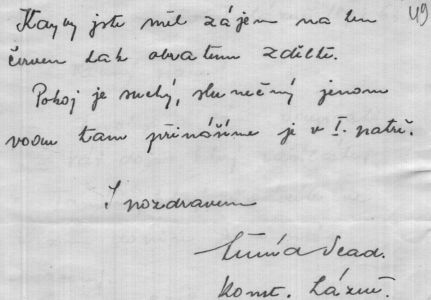 49
Kdyby jste měl zájem na ten
červen tak obratem zdělte.
Pokoj je suchý, slunečný jenom
vodu tam přinášíme je v I. patře.
S pozdravem
Konst. Lázně.